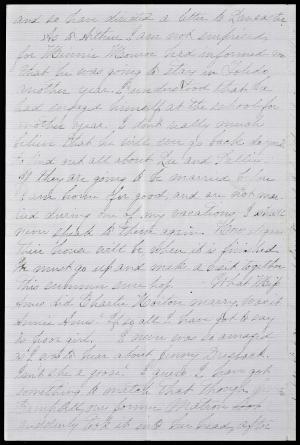 and so have directed a letter to
As to Arthur I am not surprised
for Minnie Monroe had informed me
that he was going to stay in Toledo
another year. I understood that he
had engaged himself at the school for
another year. I don't really much
believe that he will ever go back do you?
to find out all about Lu and
If they are going to be married I hope
I am home for good, and are not mar-
ried during one of my vacations, I shall
never speak to them again. How
their house will be when it is finished
We must go up and make a visit together
this summer sure pop. What
Ames did Charlie Horton marry, was it
Annie Ames? If so all I have got to say
is poor girl. I never was so amazed
as I was to hear about Jenny
Isn't she a goose? I guess I have got
something to match that though.
our former Matron
suddenly took it into her head, after